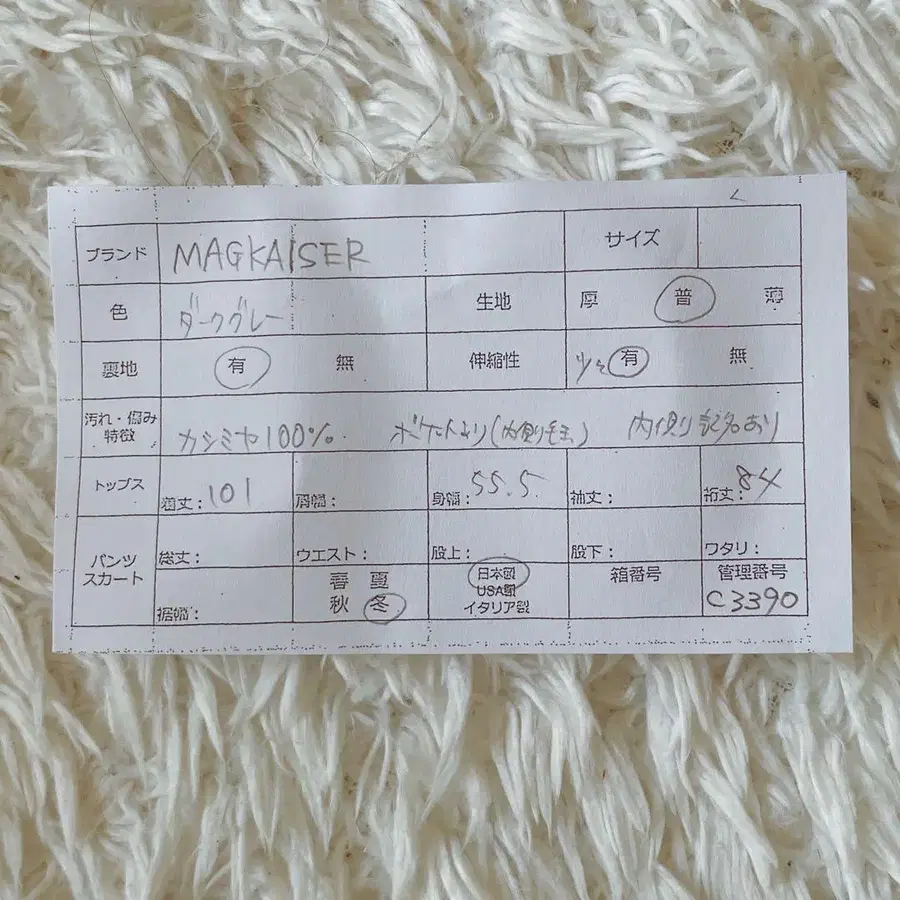 ブランド MAGKAISER サイズ
色 ダークグレー 生地 厚 普 薄
裏地 有 無 伸縮性 少々 有 無
汚れ・傷み
特徴 カシミヤ100% 内側り記名あり
トップス 着丈：101 肩幅： 身幅：55.5 袖丈： 裄丈：84
パンツ
スカート 総丈： ウエスト： 股上： 股下： ワタリ：
裾幅： 春 夏
秋 冬
日本製
USA製
イタリア製
箱番号 管理番号
C3390